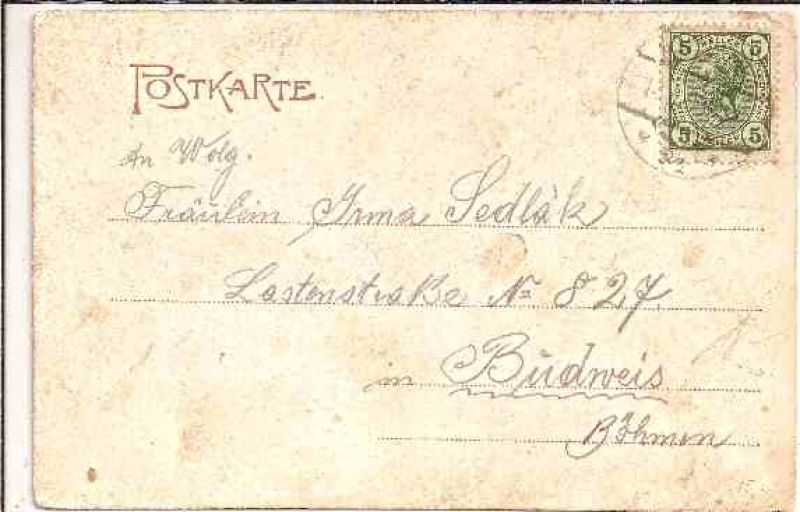 POSTKARTE.
5 HELLER 5
5 HELLER 5
An Wolg.
Fräulein Irma Sedlák
Lastenstraße № 827
in Budweis
Böhmen